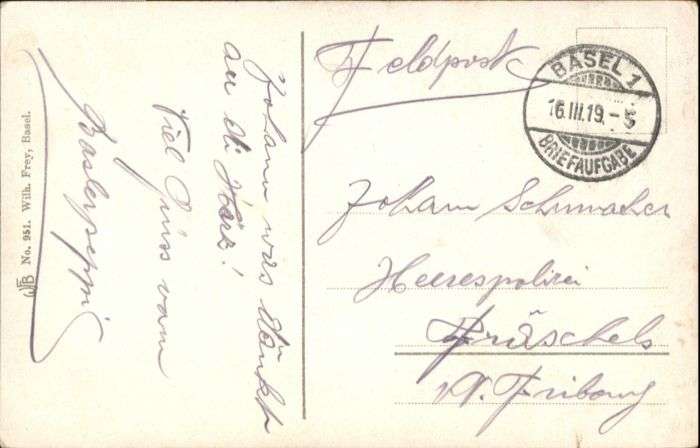 Feldpost
BASEL 1
16.III.19.-5
BRIEFAUFGABE
Johann Schumacher
Heerespolizei
Fräschels
Kt. Fribourg
Johann was
an di
Viel Grüss vom
Baslerpeppi
WFB No. 951. Wilh. Frey, Basel.